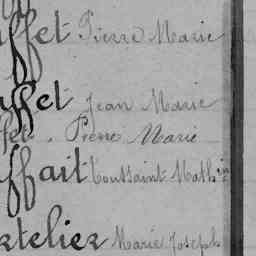 ffet Pierre Marie
ffet Jean Marie
ffet. Pierre Marie
ffait Toussaint Mathin
rtelier Marie Joseph